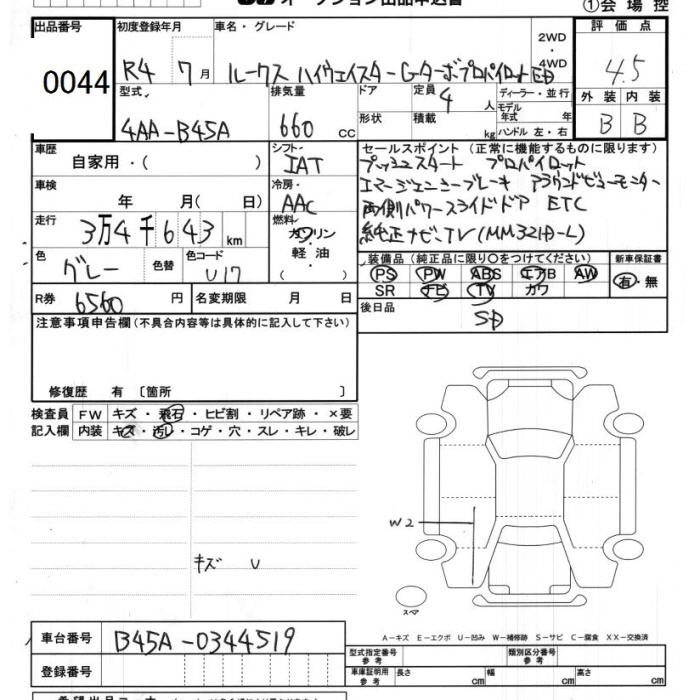 ①会場控
出品番号 初度登録年月 車名・グレード 評価点
0044
R4 7月 ルークス ハイウェイスターGターボプロパイロットED 2WD・4WD 4.5
型式 排気量 ドア 定員 ディーラー・並行 外装 内装
4AA-B45A 660cc 4人 モデル年式 年
形状 積載 kg ハンドル 左・右 B B
車歴 シフト セールスポイント(正常に機能するものに限ります)
自家用・( ) IAT プッシュスタート プロパイロット
車検 冷房 エマージェンシーブレーキ アラウンドビューモニター
年 月( 日) AAC 両側パワースライドドア ETC
走行 燃料 純正ナビ、TV(MM321D-L)
3万4千643km ガソリン・軽油・( )
色 色替 色コード 装備品(純正品に限り○をつけてください) 新車保証書
グレー U17 PS PW ABS エアB AW 有・無
SR ナビ TV カワ
R券 6560円 名変期限 月 日 後日品
SD
注意事項申告欄(不具合内容等は具体的に記入して下さい)
修復歴 有 〔箇所 〕
検査員 FW キズ・飛石・ヒビ割・リペア跡・×要
記入欄 内装 キズ・汚レ・コゲ・穴・スレ・キレ・破レ
W2
キズ U
スペア
A-キズ E-エクボ U-凹み W-補修跡 S-サビ C-腐食 XX-交換済
車台番号 B45A-0344519
型式指定番号 参考 類別区分番号 参考
登録番号 車庫証明用 参考 長さ cm 幅 cm 高さ cm